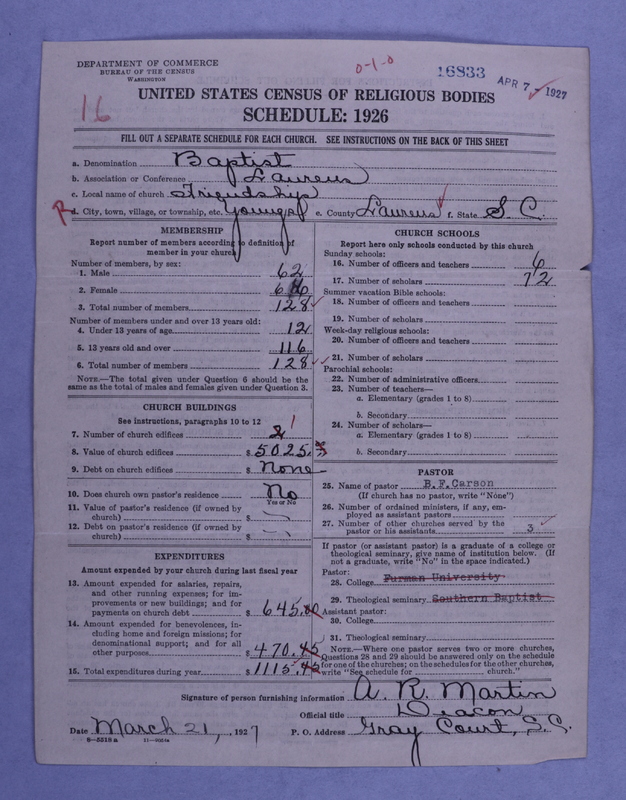 DEPARTMENT OF COMMERCE
BUREAU OF THE CENSUS
WASHINGTON
0-1-0
16833
APR 7 - 1927
16
UNITED STATES CENSUS OF RELIGIOUS BODIES
SCHEDULE: 1926
FILL OUT A SEPARATE SCHEDULE FOR EACH CHURCH. SEE INSTRUCTIONS ON THE BACK OF THIS SHEET
a. Denomination Baptist
b. Association or Conference Laurens
c. Local name of church Friendship
R
d. City, town, village, or township, etc. Youngs e. County Laurens f. State S. C.
MEMBERSHIP
Report number of members according to definition of
member in your church
Number of members, by sex:
1. Male 62
2. Female 66
3. Total number of members 128
Number of members under and over 13 years old:
4. Under 13 years of age 12
5. 13 years old and over 116
6. Total number of members 128
NOTE.—The total given under Question 6 should be the
same as the total of males and females given under Question 3.
CHURCH BUILDINGS
See instructions, paragraphs 10 to 12
7. Number of church edifices 2 1
8. Value of church edifices $ 5025.
9. Debt on church edifices $ None
10. Does church own pastor's residence No
Yes or No
11. Value of pastor's residence (if owned by
church) $
12. Debt on pastor's residence (if owned by
church) $
EXPENDITURES
Amount expended by your church during last fiscal year
13. Amount expended for salaries, repairs,
and other running expenses; for im-
provements or new buildings; and for
payments on church debt $ 645.00
14. Amount expended for benevolences, in-
cluding home and foreign missions; for
denominational support; and for all
other purposes $ 470.45
15. Total expenditures during year $ 1115.45
CHURCH SCHOOLS
Report here only schools conducted by this church
Sunday schools:
16. Number of officers and teachers 6
17. Number of scholars 72
Summer vacation Bible schools:
18. Number of officers and teachers
19. Number of scholars
Week-day religious schools:
20. Number of officers and teachers
21. Number of scholars
Parochial schools:
22. Number of administrative officers
23. Number of teachers—
a. Elementary (grades 1 to 8)
b. Secondary
24. Number of scholars—
a. Elementary (grades 1 to 8)
b. Secondary
PASTOR
25. Name of pastor B. F. Carson
(If church has no pastor, write "None")
26. Number of ordained ministers, if any, em-
ployed as assistant pastors
27. Number of other churches served by the
pastor or his assistants 3
If pastor (or assistant pastor) is a graduate of a college or
theological seminary, give name of institution below. (If
not a graduate, write "No" in the space indicated.)
Pastor:
28. College Furman University
29. Theological seminary Southern Baptist
Assistant pastor:
30. College
31. Theological seminary
NOTE.—Where one pastor serves two or more churches,
Questions 28 and 29 should be answered only on the schedule
for one of the churches; on the schedules for the other churches,
write "See schedule for church."
Signature of person furnishing information A. R. Martin
Official title Deacon
Date March 21, 1927 P. O. Address Gray Court, S. C.
8-5518a